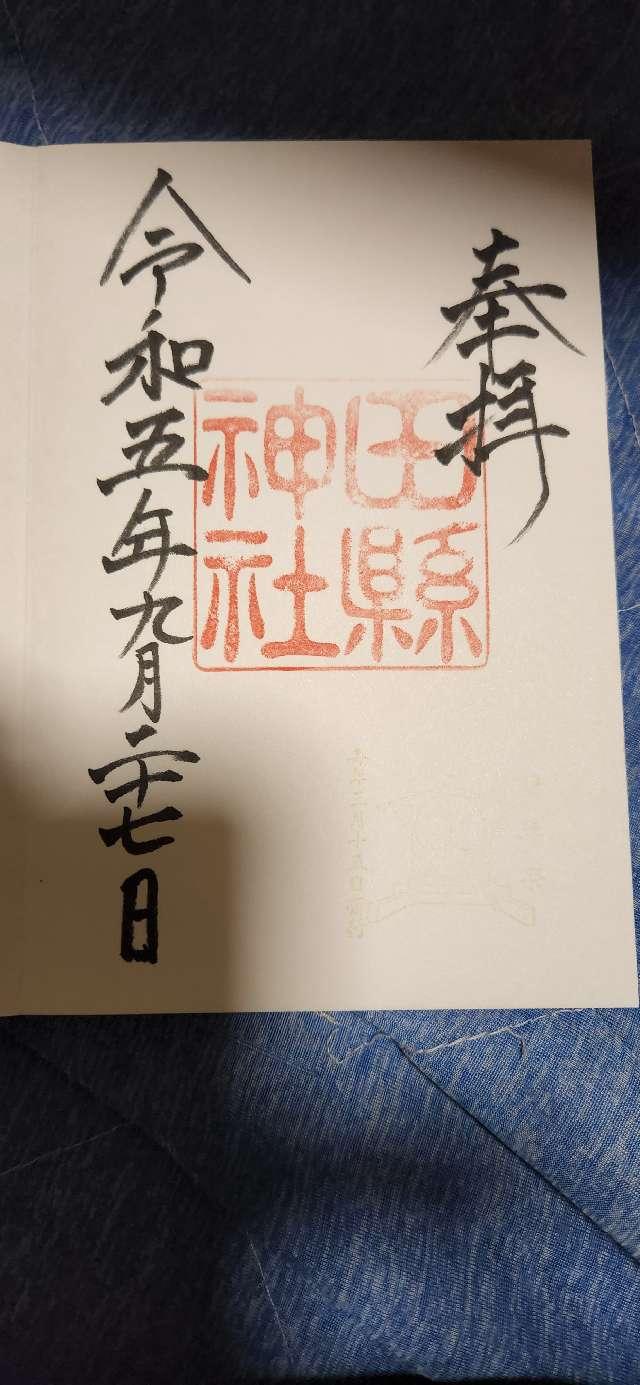 奉拝
田縣
神社
令和五年九月二十七日